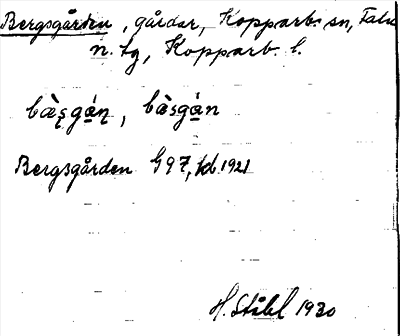 Bergsgården, gårdar, Kopparb. sn, Falu
n. tg, Kopparb. l.
bæ̀s̨gá̱n̨, bàsgá̱n
Bergsgården G97, jb 1921
H. Ståhl 1930